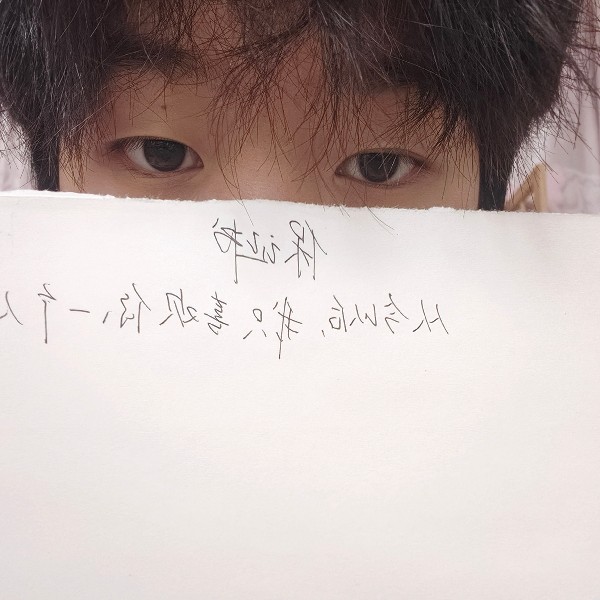 保证书
从今以后,我只喜欢你一个人